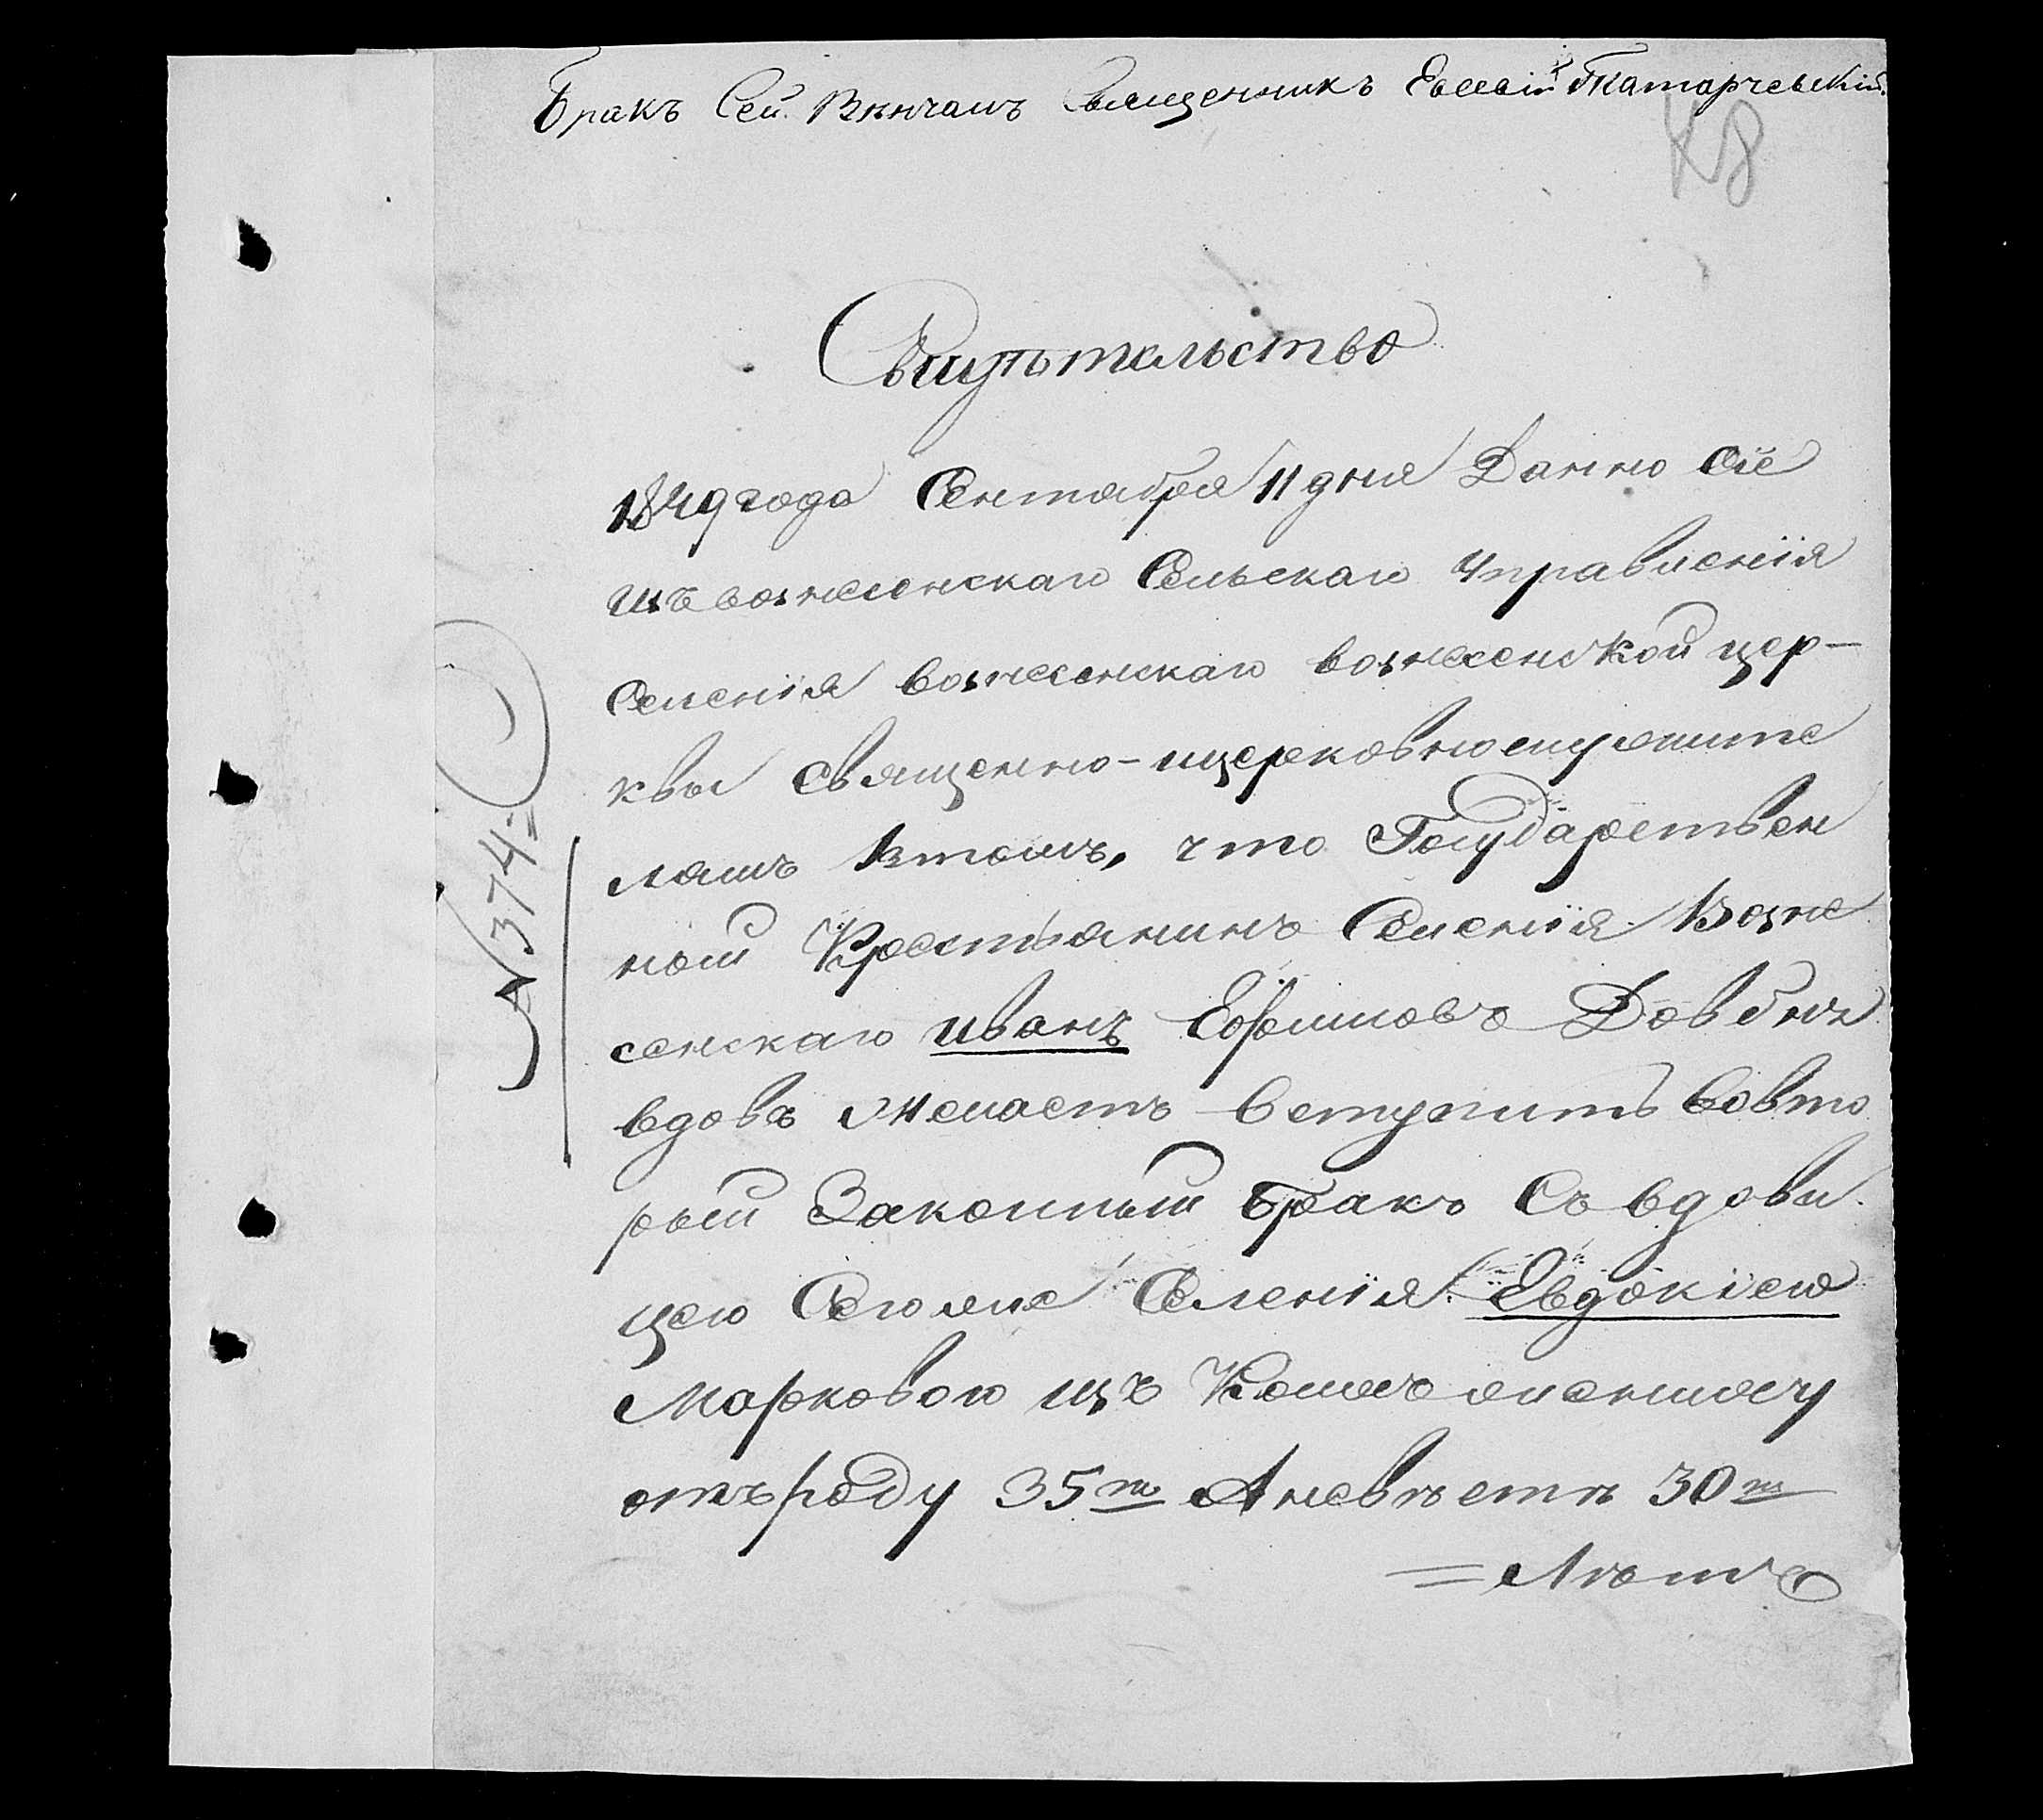 Бракъ Сей Вѣнчалъ Священникъ Евсевій Татарчевскій.
48
Свидѣтельство
1849 года Сентября 11 дня Данно Сіе
изъ вознесенскаго Сельскаго Управленія
Селенія вознесенскаго вознесенской цер-
квы Священно-ицерковнослужите
лямъ Втомъ, что Государствен
ной Крестьянинъ Селенія Возне
сенскаго иванъ Ефимовъ Довбня
вдовъ Желаетъ Вступить Вовто
рый Законный бракъ Съ вдови
цею Сегоже Селенія Евдокіею
Марковою изъ жениху
отъ роду 35т А невѣстѣ 30т
= Лѣтъ
№ 374